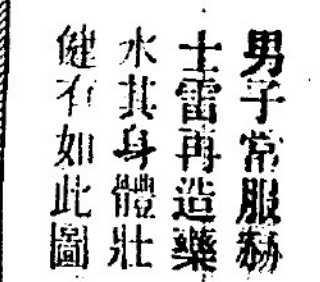 男子常服赫
士雷再造藥
水其身體壯
健有如此圖